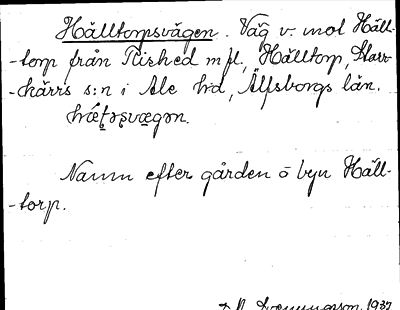 Hälltorpsvägen. Väg v. mot Häll-
-torp från Rished m fl., Hälltorp, Starr-
-kärrs s:n i Ale hd, Älfsborgs län.
Namn efter gården o byn Häll-
-torp.
1937